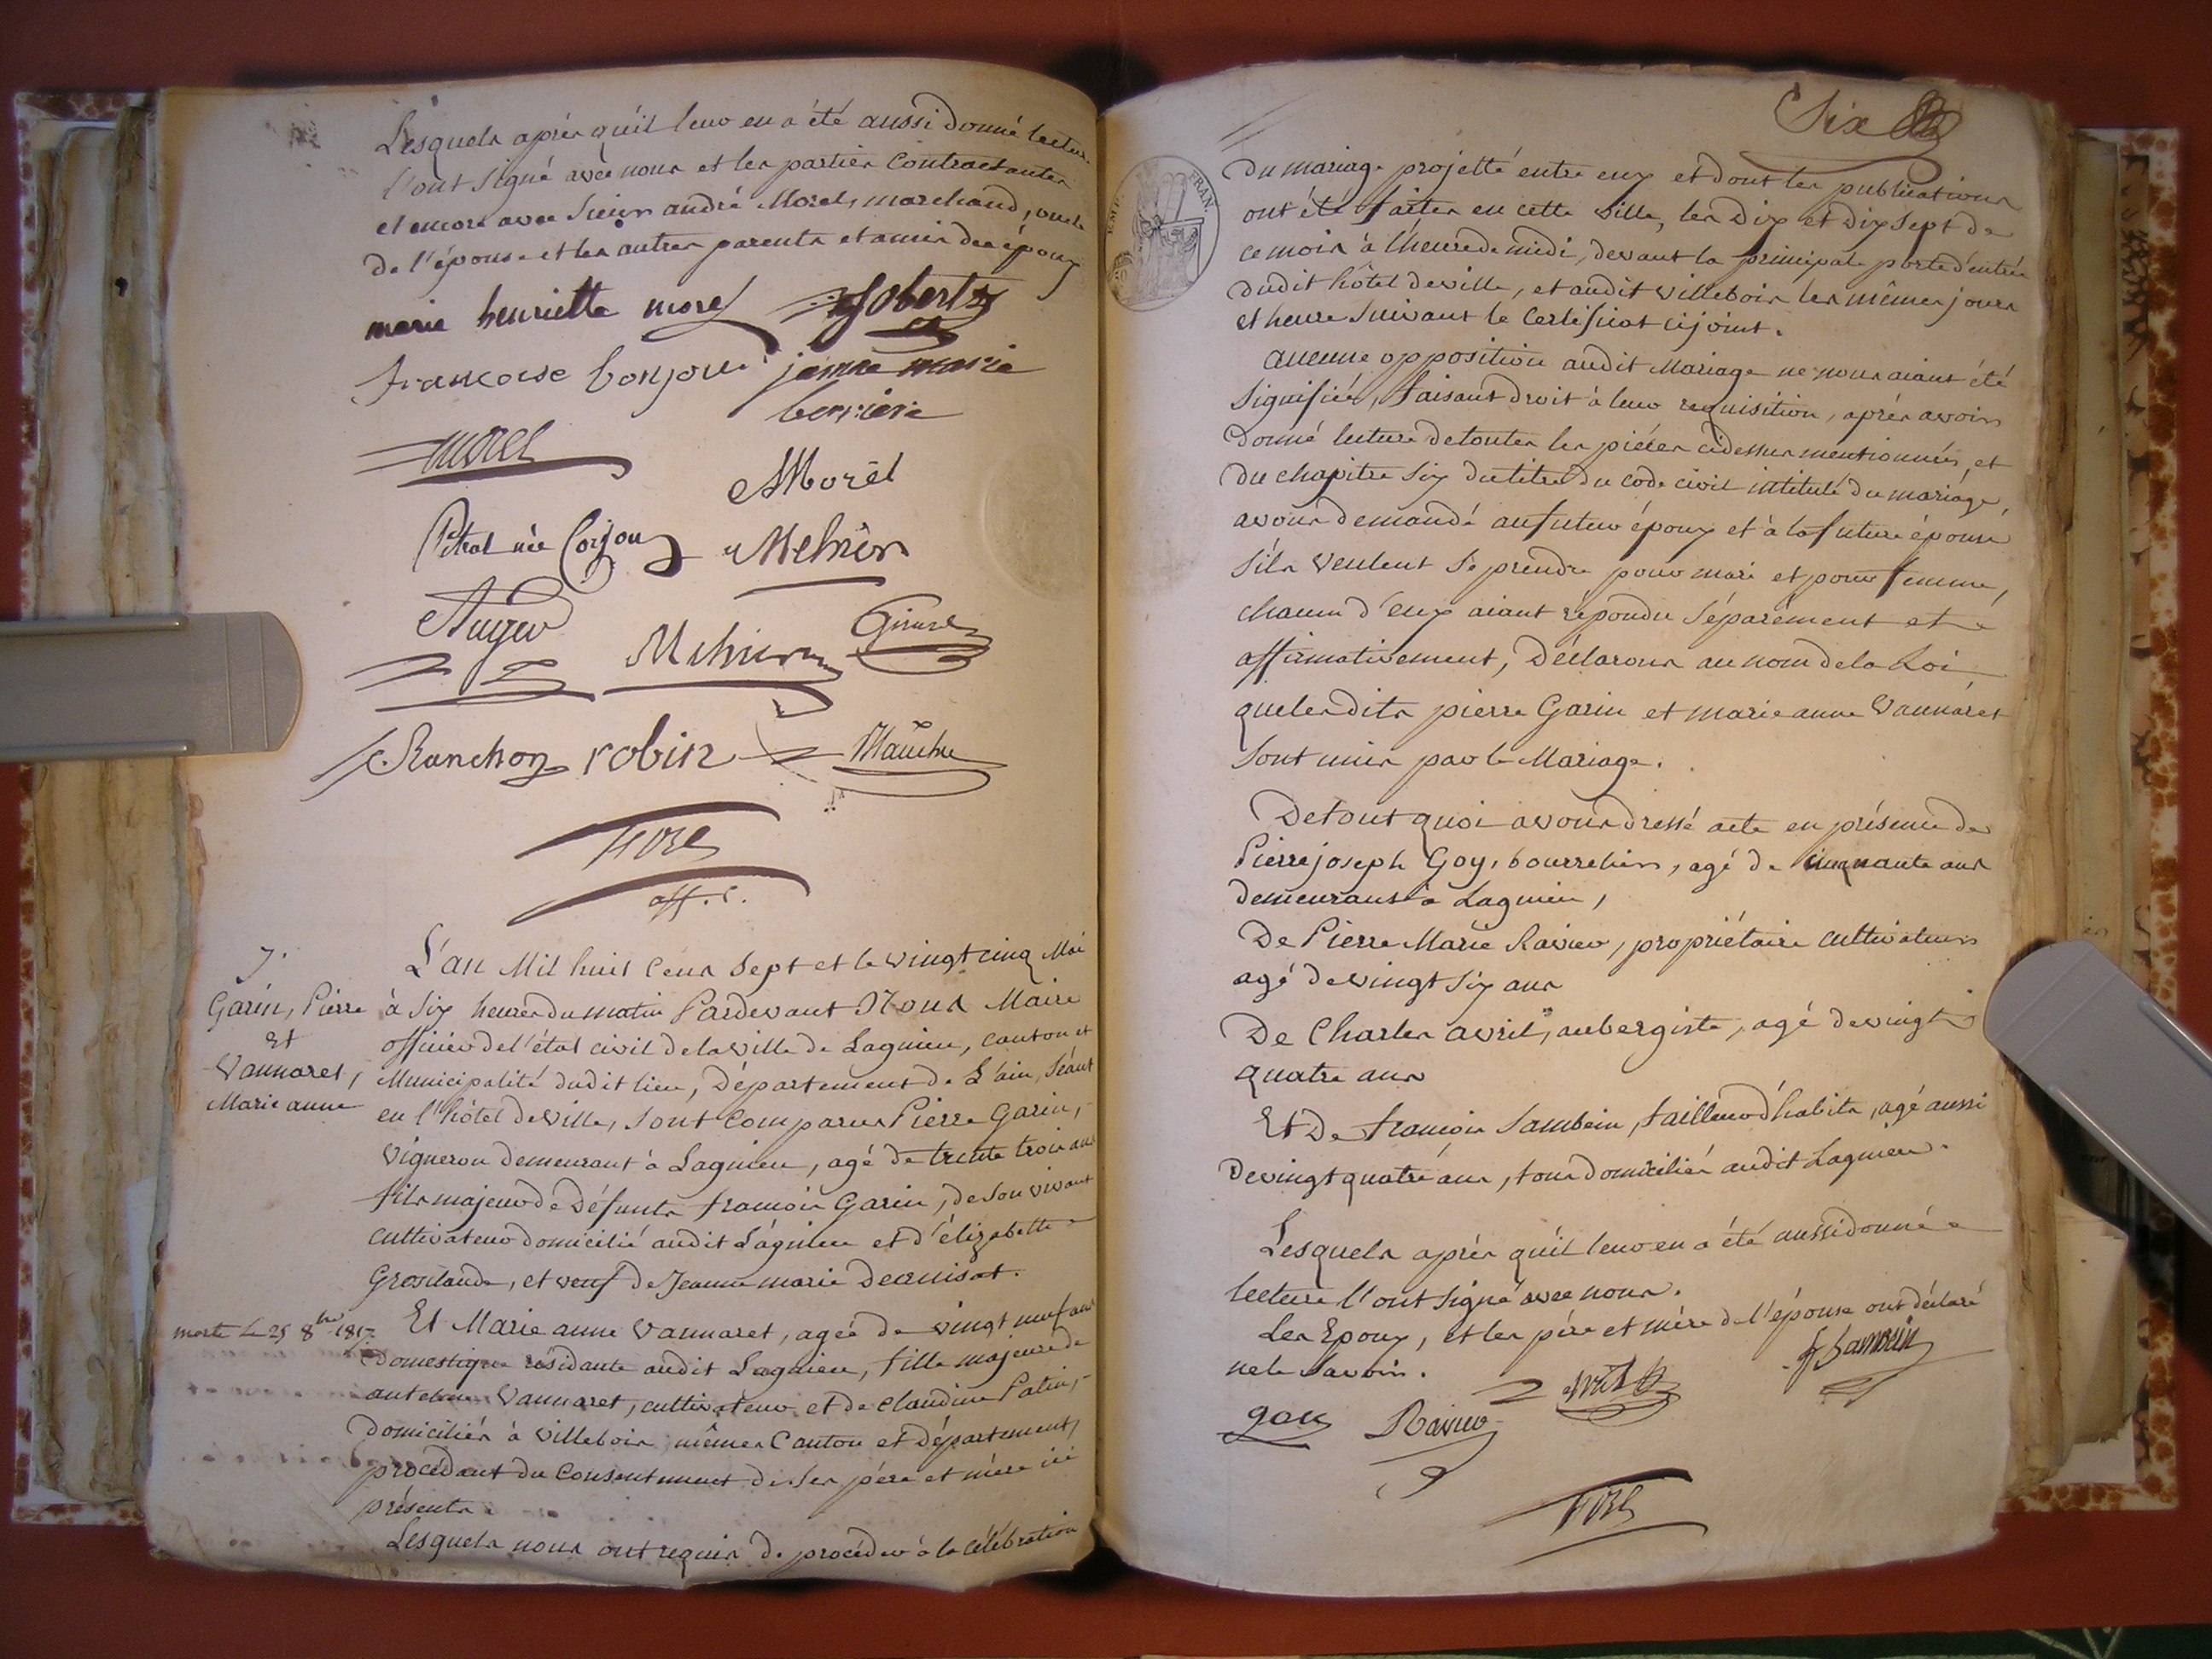 Lesquels après qu'il leur en a été aussi donné lecture
l'ont signé avec nous et les parties Contractantes
et encore avec sieur andré Morel, marchand, oncle
de l'épouse et les autres parents et amis des époux
marie henriette morel Jobert
francoise bonjour jeanne marie
berriere
morel
AMorel
née
Auger
Girard
Ranchon robin
off. c.
7.
Garin, Pierre
et
Vannaret,
Marie anne
L'an Mil huit Cent Sept et le vingt cinq Mai
à six heures du matin Pardevant Nous Maire
officier de l'état civil de la ville de Lagnieu, canton et
Municipalité dudit lieu, Département de L'ain, séant
en l'hôtel de ville, sont Comparus Pierre Garin,
vigneron demeurant à Lagnieu, agé de trente trois ans
fils majeur de défunts francois Garin, de son vivant
cultivateur domicilié audit Lagnieu et d'élizabette
et veuf de Jeanne marie
morte le 25 8bre 1817
Et Marie anne Vannaret, agée de vingt neuf ans
domestique résidante audit Lagnieu, fille majeure de
antelme Vannaret, cultivateur et de claudine Patin,
domiciliés à villebois mêmes Canton et département,
procédant du Consentement de ses père et mère ici
présents.
Lesquels nous ont requis de procéder à la célébration
Six
EMP. FRAN.
du mariage projetté entre eux et dont les publications
ont été faites en cette ville, les dix et dix sept de
ce mois à l'heure de midi, devant la principale porte d'entrée
dudit hôtel de ville, et audit villebois les mêmes jours
et heure suivant le certificat ci joint.
aucune opposition audit Mariage ne nous aiant été
signifiée, faisant droit à leur requisition, après avoir
donné lecture de toutes les pièces cidessus mentionnées, et
du chapitre six du titre du code civil intitulé du mariage,
avons demandé au futur époux et à la future épouse
s'ils veulent se prendre pour mari et pour femme,
chacun d'eux aiant répondu séparément et
affirmativement, Déclarons au nom de la Loi
que lesdits pierre Garin et marie anne Vannaret
sont unis par le Mariage.
De tout quoi avons dressé acte en présence de
Pierre joseph Goy, bourrelier, agé de cinquante ans
demeurant à Lagnieu,
De Pierre Marie Ravier, propriétaire cultivateur
agé de vingt six ans
De Charles avril, aubergiste, agé de vingt
quatre ans
Et De francois Sambein, tailleur d'habits, agé aussi
de vingt quatre ans, tous domiciliés audit Lagnieu.
Lesquels après qu'il leur en a été aussi donné
lecture l'ont signé avec nous.
Les Epoux, et les père et mère de l'épouse ont déclaré
ne le savoir.
avril
f Sambein
goy Ravier